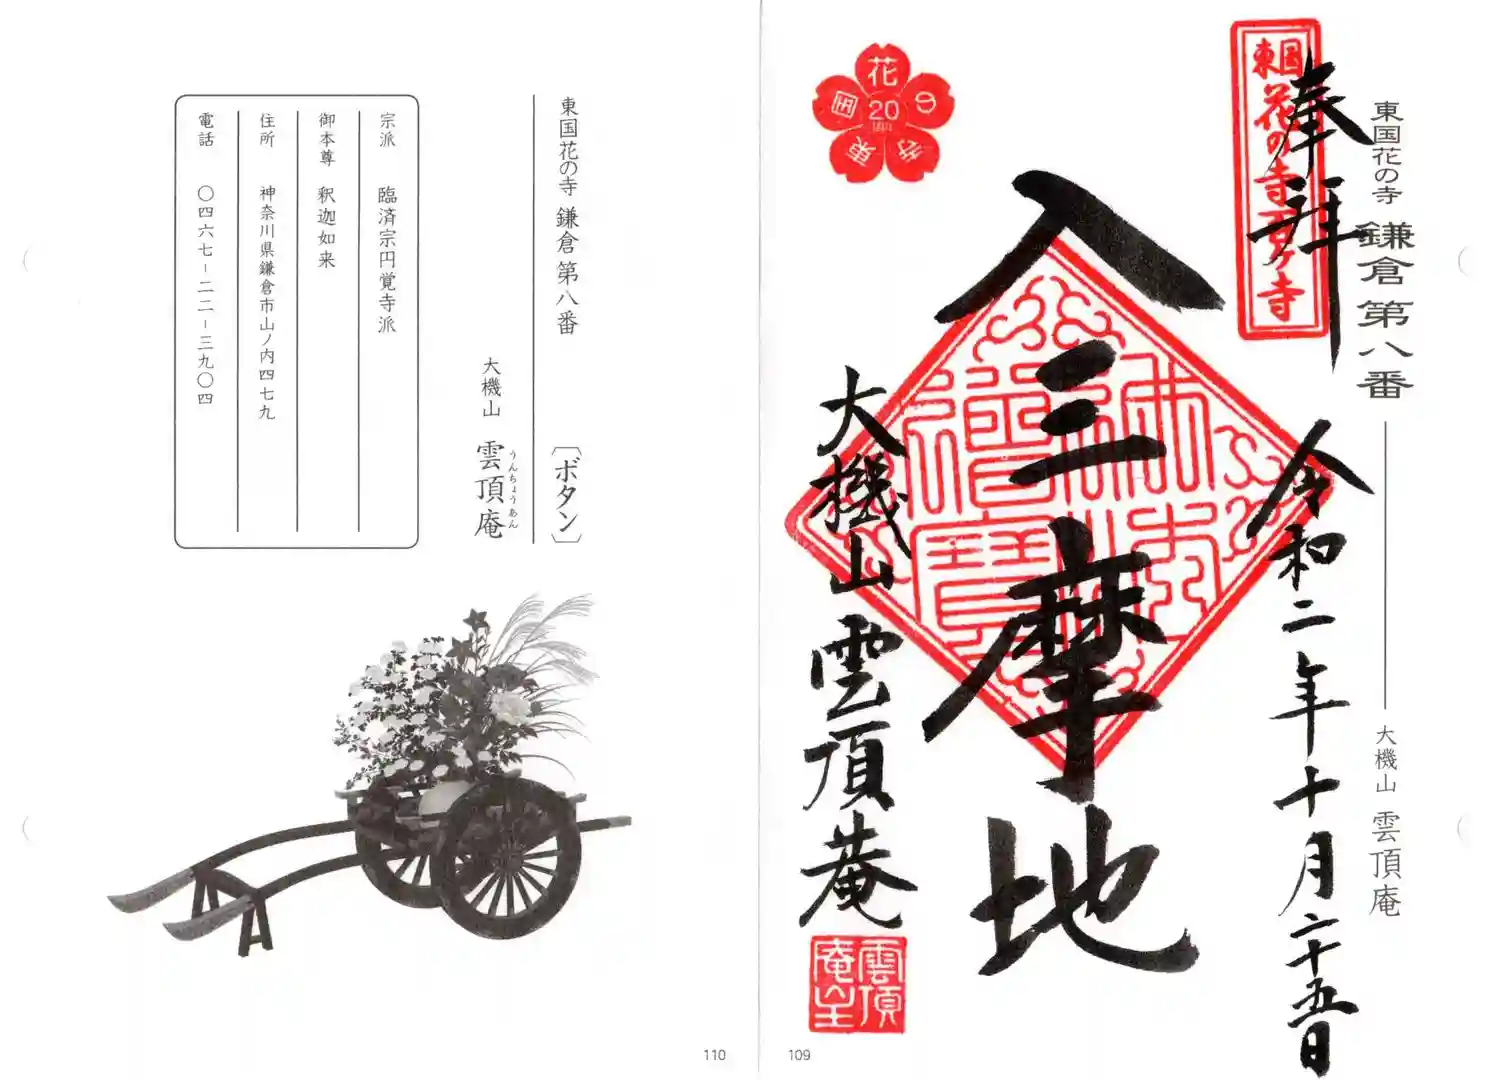 東国花の寺 鎌倉第八番
大機山 雲頂庵
東国花の寺百ヶ寺
奉拝
令和二年十月二十五日
入三摩地
大機山雲頂菴
花の寺 東国
20
雲頂
庵主
109
東国花の寺 鎌倉 第八番 〔ボタン〕
大機山 雲頂庵
うんちょうあん
宗派 臨済宗円覚寺派
御本尊 釈迦如来
住所 神奈川県鎌倉市山ノ内四七九
電話 〇四六七-二二-三九〇四
110